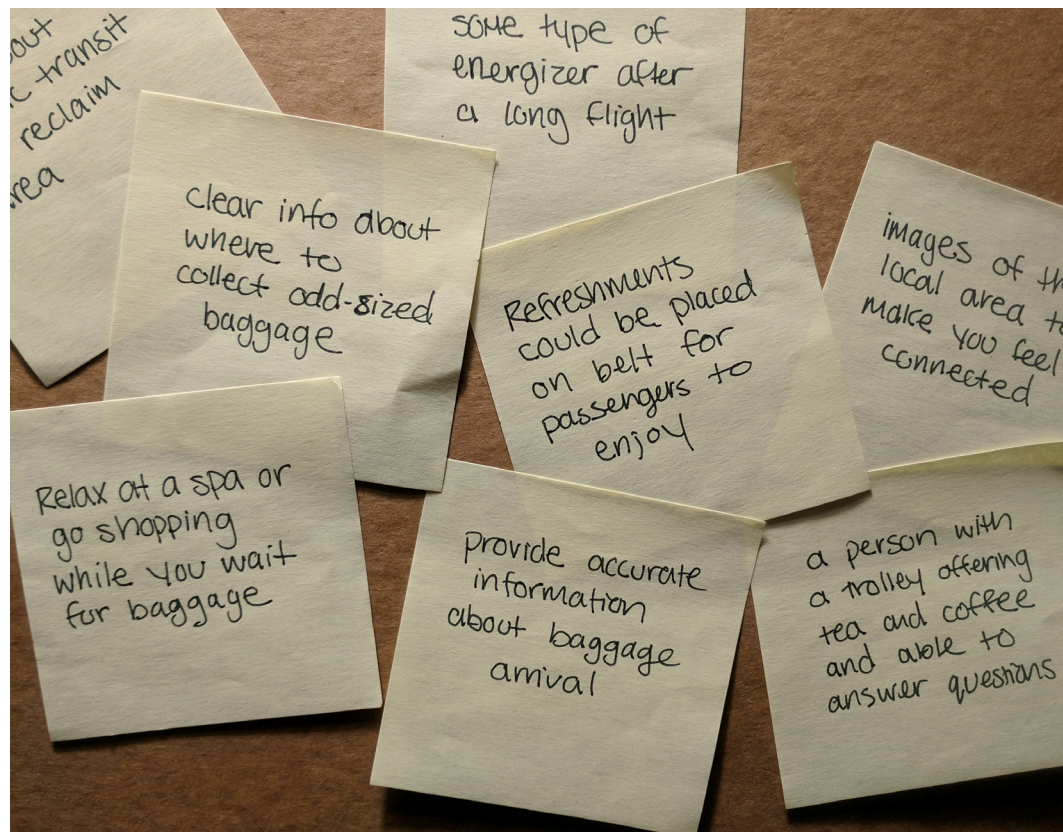 out
transit
reclaim
some type of
energizer after
a long flight
clear info about
where to
collect odd-sized
baggage
Refreshments
could be placed
on belt for
passengers to
enjoy
images of
local area
make you feel
connected
Relax at a spa or
go shopping
while you wait
for baggage
provide accurate
information
about baggage
arrival
a person with
a trolley offering
tea and coffee
and able to
answer questions